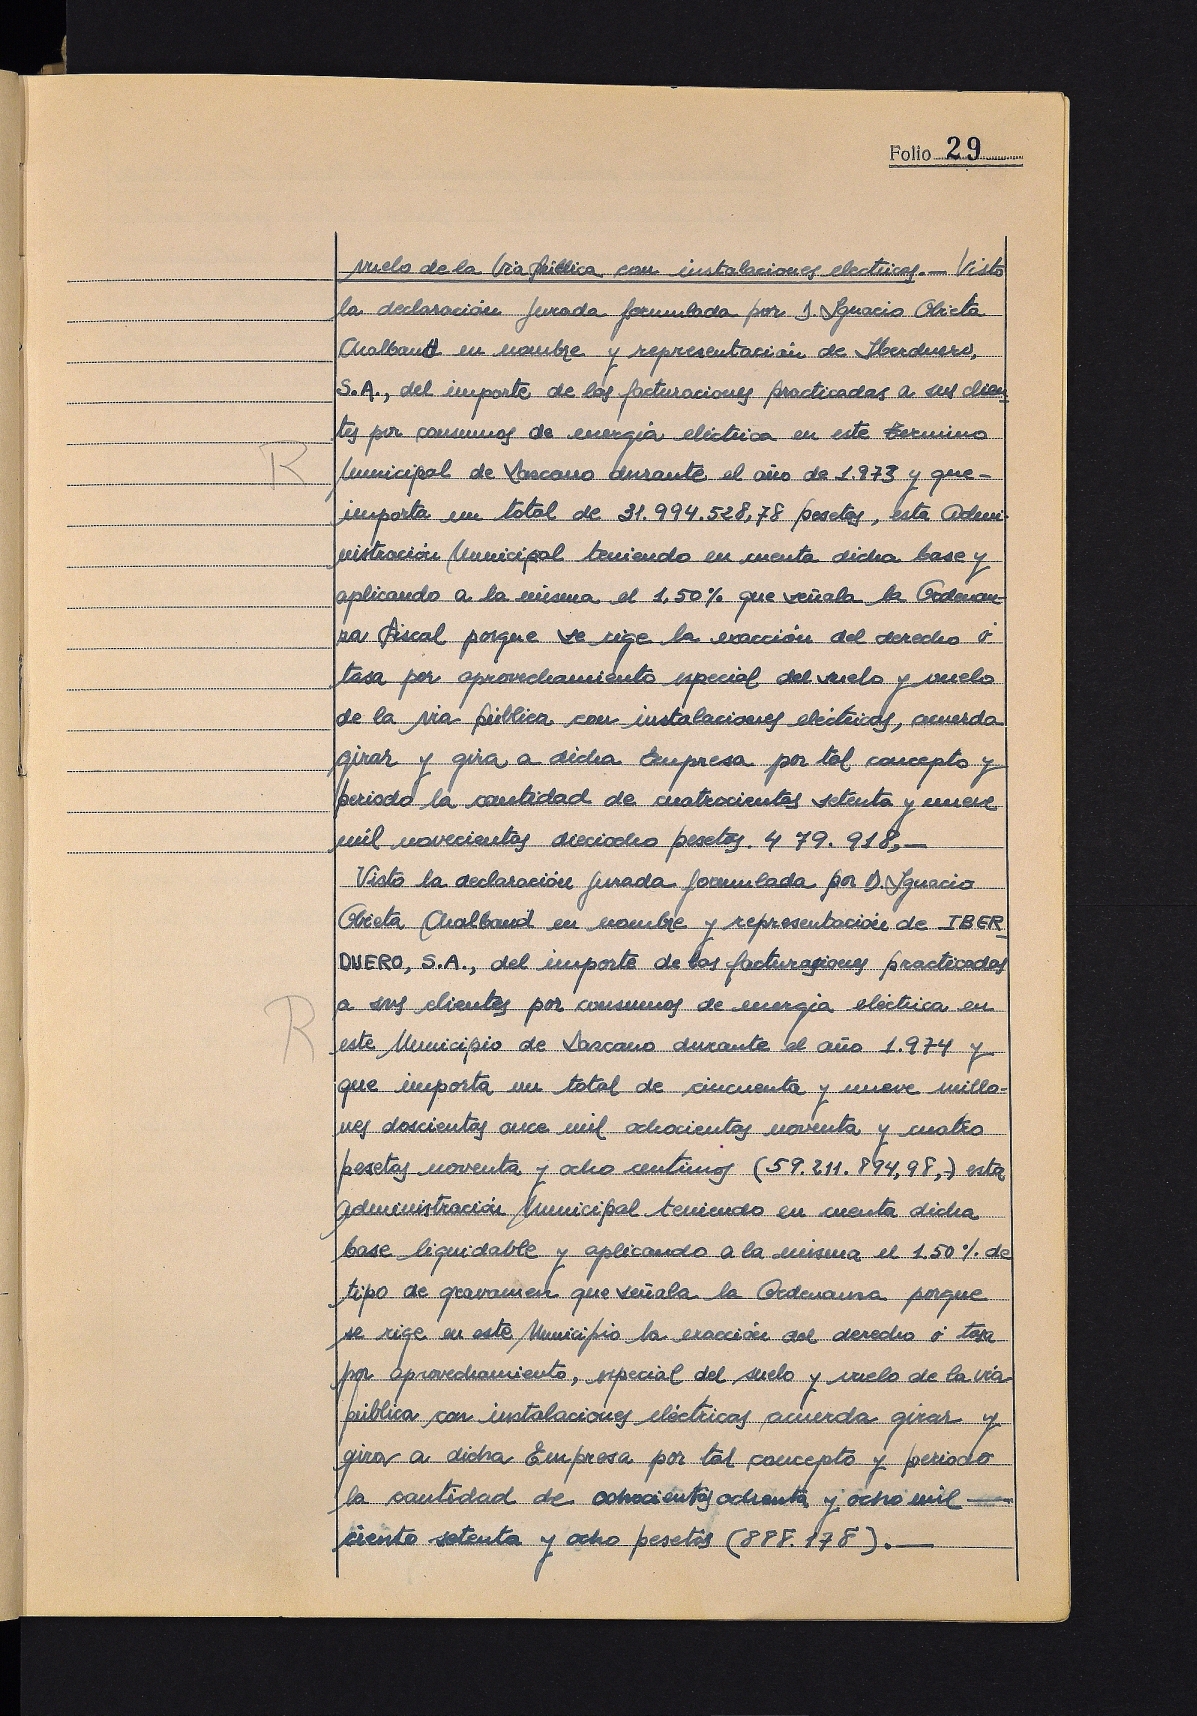 Folio 29
vuelo de la Via pública con instalaciones electricas.— Visto
la declaración Jurada formulada por D. Ignacio Obieta
Chalbaud en nombre y representación de Iberduero,
S.A., del importe de las facturaciones practicadas a sus clien-
tes por consumos de energia eléctrica en este termino
R
Municipal de Lazcano durante el año de 1.973 y que-
importa un total de 31.994.528,78 pesetas, esta Admi-
nistración Municipal teniendo en cuenta dicha base y
aplicando a la misma el 1,50% que señala la Ordenan-
za fiscal porque se rige la exacción del derecho ó
tasa por aprovechamiento especial del suelo y vuelo
de la via pública con instalaciones eléctricas, acuerda
girar y gira a dicha Empresa por tal concepto y
periodo la cantidad de cuatrocientas setenta y nueve
mil novecientas dieciocho pesetas. 4 79. 918,—
Visto la declaración Jurada formulada por D. Ignacio
Obieta Chalbaud en nombre y representación de IBER-
DUERO, S.A., del importe de las facturaciones practicadas
a sus clientes por consumos de energia eléctrica en
R
este Municipio de Lazcano durante el año 1.974 y
que importa un total de cincuenta y nueve millo-
nes doscientas once mil ochocientas noventa y cuatro
pesetas noventa y ocho centimos (59.211.894,98,) esta
Administración Municipal teniendo en cuenta dicha
base liquidable y aplicando a la misma el 1.50% de
tipo de gravamen que señala la Ordenanza porque
se rige en este Municipio la exacción del derecho ó tasa
por aprovechamiento, especial del suelo y vuelo de la via
pública con instalaciones eléctricas acuerda girar y
gira a dicha Empresa por tal concepto y periodo
la cantidad de ochocientas ochenta y ocho mil —
ciento setenta y ocho pesetas (888.178).—